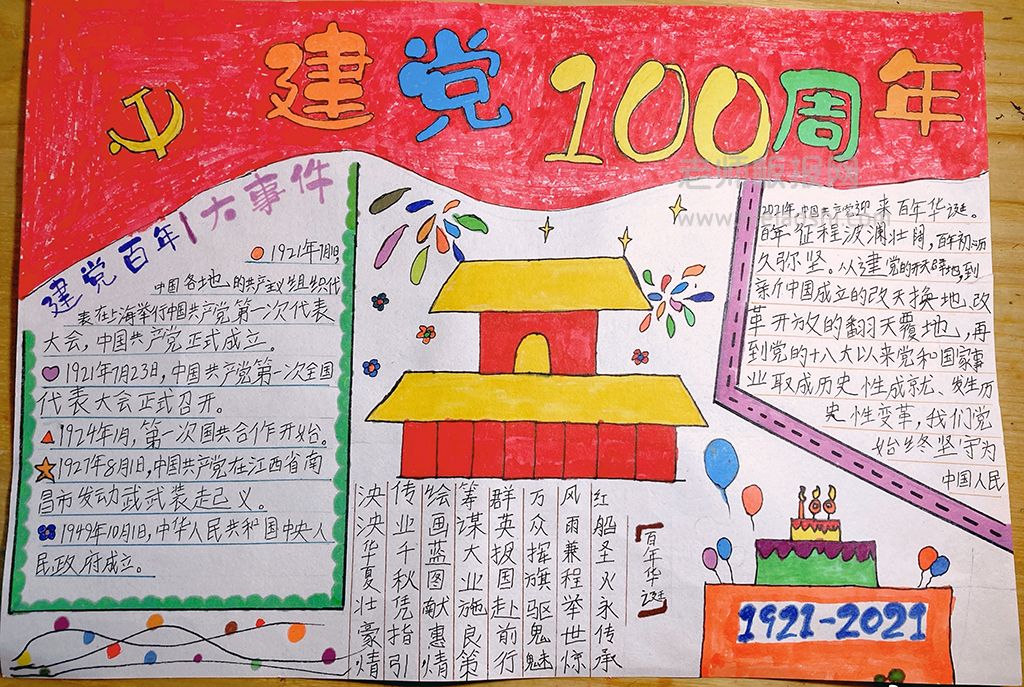 建党100周年
建党百年大事件
1921年7月1日,
中国各地的共产主义组织代
表在上海举行中国共产党第一次代表
大会,中国共产党正式成立。
1921年7月23日,中国共产党第一次全国
代表大会正式召开。
1924年1月,第一次国共合作开始。
1927年8月1日,中国共产党在江西省南
昌市发动武武装走已义。
1949年10月1日,中华人民共和国中央人
民政府成立。
2021年,中国共产党迎来百年华诞。
百年征程波澜壮阔,百年初心
久弥坚。从建党的开天辟地,到
新中国成立的改天换地,改
革开放的翻天覆地,再
到党的十八大以来党和国家事
业取成历史性成就、发生历
史性变革,我们党
始终坚守为
中国人民
百年华诞
红船圣火永传承
风雨兼程举世惊
万众挥旗驱鬼魅
群英报国赴前行
筹谋大业施良策
绘画蓝图献惠情
传业千秋凭指引
泱泱华夏壮豪情
100
1921-2021
老师版报网